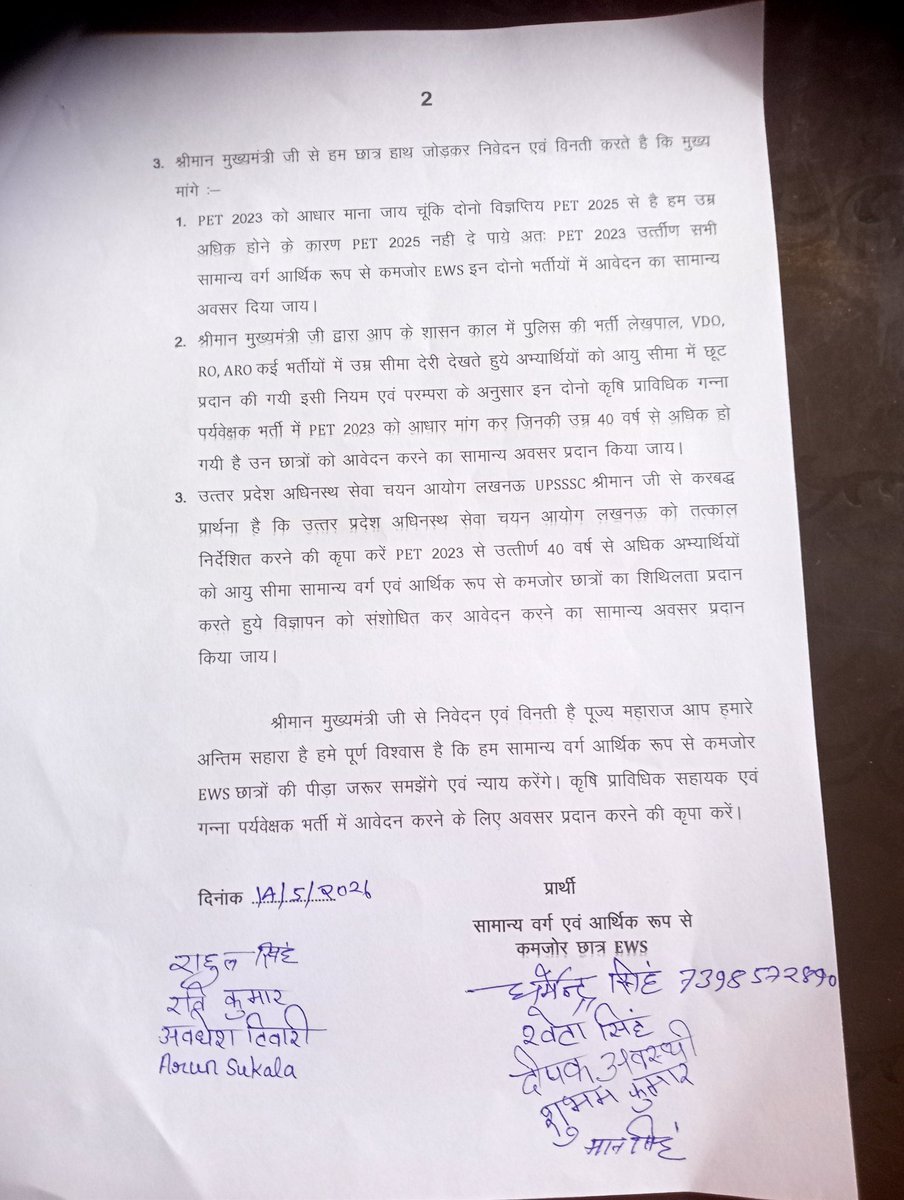 2
3. श्रीमान मुख्यमंत्री जी से हम छात्र हाथ जोड़कर निवेदन एवं विनती करते है कि मुख्य
मांगे :–
1. PET 2023 को आधार माना जाय चूंकि दोनो विज्ञप्तिय PET 2025 से है हम उम्र
अधिक होने के कारण PET 2025 नही दे पाये अतः PET 2023 उर्त्तीण सभी
सामान्य वर्ग आर्थिक रूप से कमजोर EWS इन दोनो भर्तीयों में आवेदन का सामान्य
अवसर दिया जाय।
2. श्रीमान मुख्यमंत्री जी द्वारा आप के शासन काल में पुलिस की भर्ती लेखपाल, VDO,
RO, ARO कई भर्तीयों में उम्र सीमा देरी देखते हुये अभ्यार्थियों को आयु सीमा में छूट
प्रदान की गयी इसी नियम एवं परम्परा के अनुसार इन दोनो कृषि प्राविधिक गन्ना
पर्यवेक्षक भर्ती में PET 2023 को आधार मांग कर जिनकी उम्र 40 वर्ष से अधिक हो
गयी है उन छात्रों को आवेदन करने का सामान्य अवसर प्रदान किया जाय।
3. उत्तर प्रदेश अधिनस्थ सेवा चयन आयोग लखनऊ UPSSSC श्रीमान जी से करबद्ध
प्रार्थना है कि उत्तर प्रदेश अधिनस्थ सेवा चयन आयोग लखनऊ को तत्काल
निर्देशित करने की कृपा करें PET 2023 से उत्तीर्ण 40 वर्ष से अधिक अभ्यार्थियों
को आयु सीमा सामान्य वर्ग एवं आर्थिक रूप से कमजोर छात्रों का शिथिलता प्रदान
करते हुये विज्ञापन को संशोधित कर आवेदन करने का सामान्य अवसर प्रदान
किया जाय।
श्रीमान मुख्यमंत्री जी से निवेदन एवं विनती है पूज्य महाराज आप हमारे
अन्तिम सहारा है हमे पूर्ण विश्वास है कि हम सामान्य वर्ग आर्थिक रूप से कमजोर
EWS छात्रों की पीड़ा जरूर समझेंगे एवं न्याय करेंगे। कृषि प्राविधिक सहायक एवं
गन्ना पर्यवेक्षक भर्ती में आवेदन करने के लिए अवसर प्रदान करने की कृपा करें।
दिनांक 14/5/2026
प्रार्थी
सामान्य वर्ग एवं आर्थिक रूप से
कमजोर छात्र EWS
राहुल सिंह
रवि कुमार
अवधेश तिवारी
Arun Sukala
धर्मेन्द्र सिंह 7398572890
श्वेता सिंह
दीपक अवस्थी
शुभम कुमार
मान सिंह